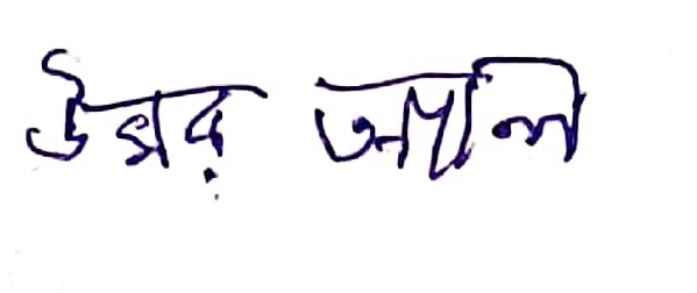 উমর আলি